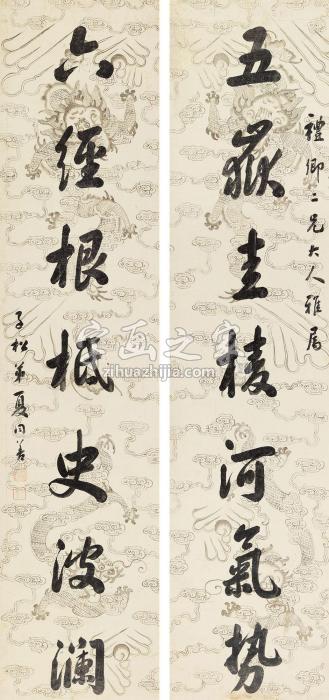 禮卿二兄大人雅屬
五嶽圭稜河氣势
六經根柢史波瀾
子松弟夏同善
字画之家
zihuazhijia.com